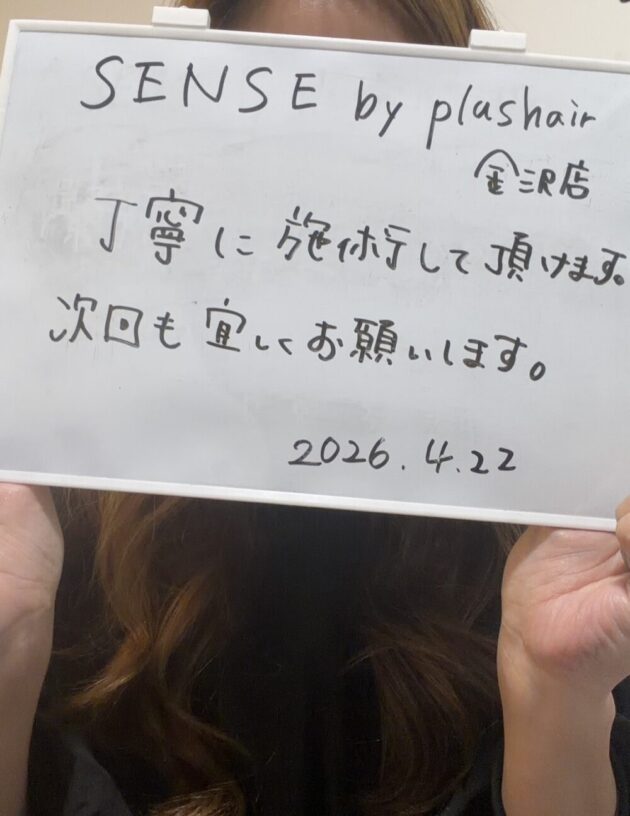 SENSE by plushair
金沢店
丁寧に施術して頂けます。
次回も宜しくお願いします。
2026.4.22